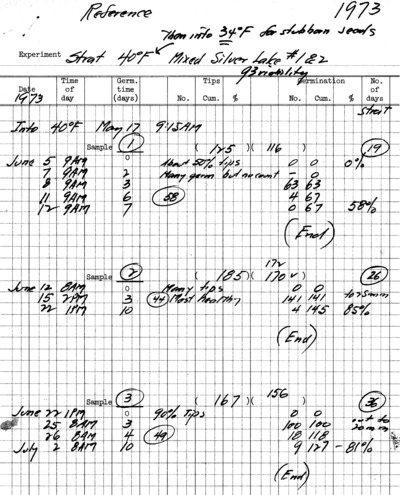 Reference 1973
Then into 34°F for stubborn seeds
Experiment Strat 40°F Mixed Silver Lake #1&2
93 viability
Time Germ. Tips Germination No.
Date of time of
1973 day (days) No. Cum. % No. Cum. % days
strat
Into 40°F May 17 9:15AM
Sample 1 (125)(116 19
June 5 9AM 0 About 50% tips 0 0 0%
7 9AM 2 Many germ but no count - 0
8 9AM 3 63 63
11 9AM 6 58 4 67
12 9AM 7 0 67 58%
(End)
172
Sample 2 (185)(170 26
June 12 8AM 0 Many tips 0 0
15 2PM 3 44 Most healthy 141 141 to 25mm
22 1PM 10 4 145 85%
(End)
156
Sample 3 (167)( 36
June 22 1PM 0 90% Tips 0 0 out to
25 8AM 3 100 100 20mm
26 8AM 4 49 18 118
July 2 8AM 10 9 127 - 81%
(End)